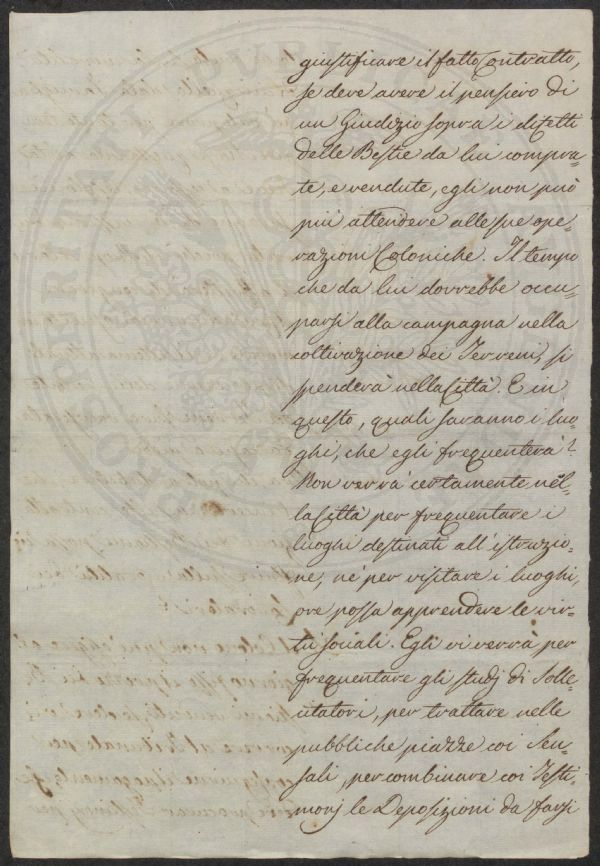 giustificare il fatto Contratto,
se deve avere il pensiero di
un Giudizio sopra i difetti
delle Bestie da lui compra-
te, e vendute, egli non può
più attendere alle sue ope-
razioni Coloniche. Il tempo
che da lui dovrebbe occu-
parsi alla campagna nella
coltivazione dei Terreni, si
spenderà nella Città. E in
questo, quali saranno i luo-
ghi, che egli frequenterà?
Non verrà certamente nel-
la Città per frequentare i
luoghi destinati all'istruzio-
ne, nè per visitare i luoghi,
ove possa apprendere le vir-
tù sociali. Egli vi verrà per
frequentare gli studj di Solle-
citatori, per trattare nelle
pubbliche piazze coi Sen-
sali, per combinare coi Testi-
monj le Deposizioni da farsi